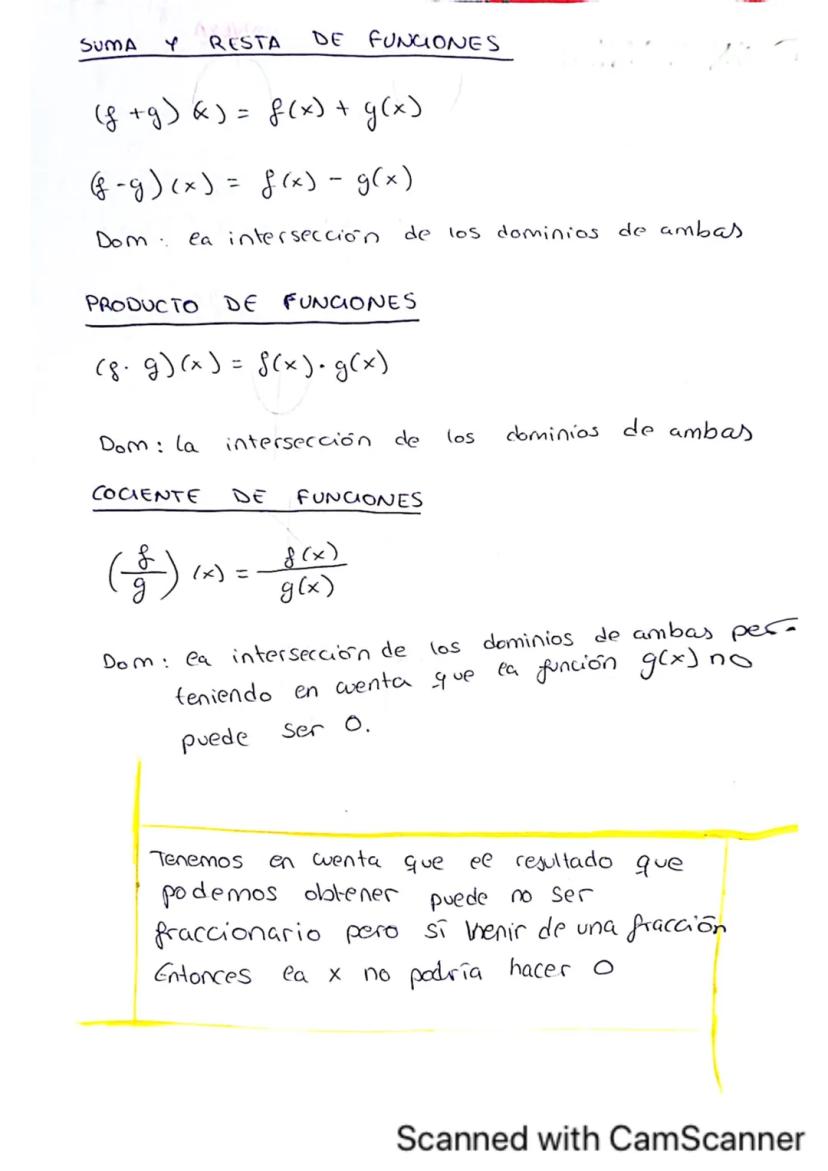 SUMA Y RESTA DE FUNCIONES
(f + g) (x) = f(x) + g(x)
(f - g) (x) = f(x) - g(x)
Dom : la intersección de los dominios de ambas
PRODUCTO DE FUNCIONES
(f · g)(x) = f(x) · g(x)
Dom : la intersección de los dominios de ambas
COCIENTE DE FUNCIONES
(f/g) (x) = f(x)/g(x)
Dom : la intersección de los dominios de ambas pero
teniendo en cuenta que la función g(x) no
puede ser 0.
Tenemos en cuenta que el resultado que
podemos obtener puede no ser
fraccionario pero sí venir de una fracción
Entonces la x no podría hacer 0
Scanned with CamScanner